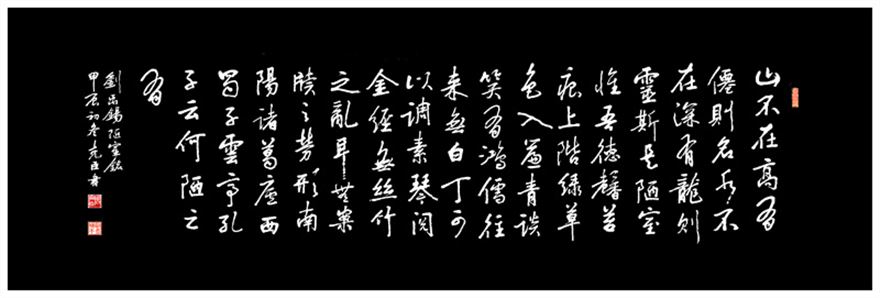 山不在高有
僊則名水不
在深有龍則
靈斯是陋室
惟吾德馨苔
痕上階綠草
色入簾青談
笑有鴻儒往
来無白丁可
以調素琴閱
金經無絲竹
之亂耳無案
牘之勞形南
陽諸葛廬西
蜀子雲亭孔
子云何陋之
有
劉禹錫陋室銘
甲辰初冬書